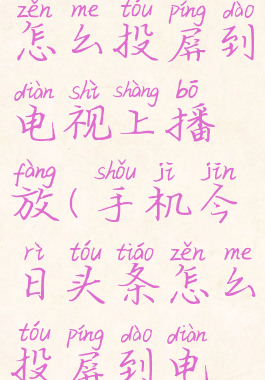 zěn me tóu píng dào
怎么投屏到
diàn shì shàng bō
电视上播
fàng shǒu jī jīn
放(手机今
rì tóu tiáo zěn me
日头条怎么
tóu píng dào diàn
投屏到电